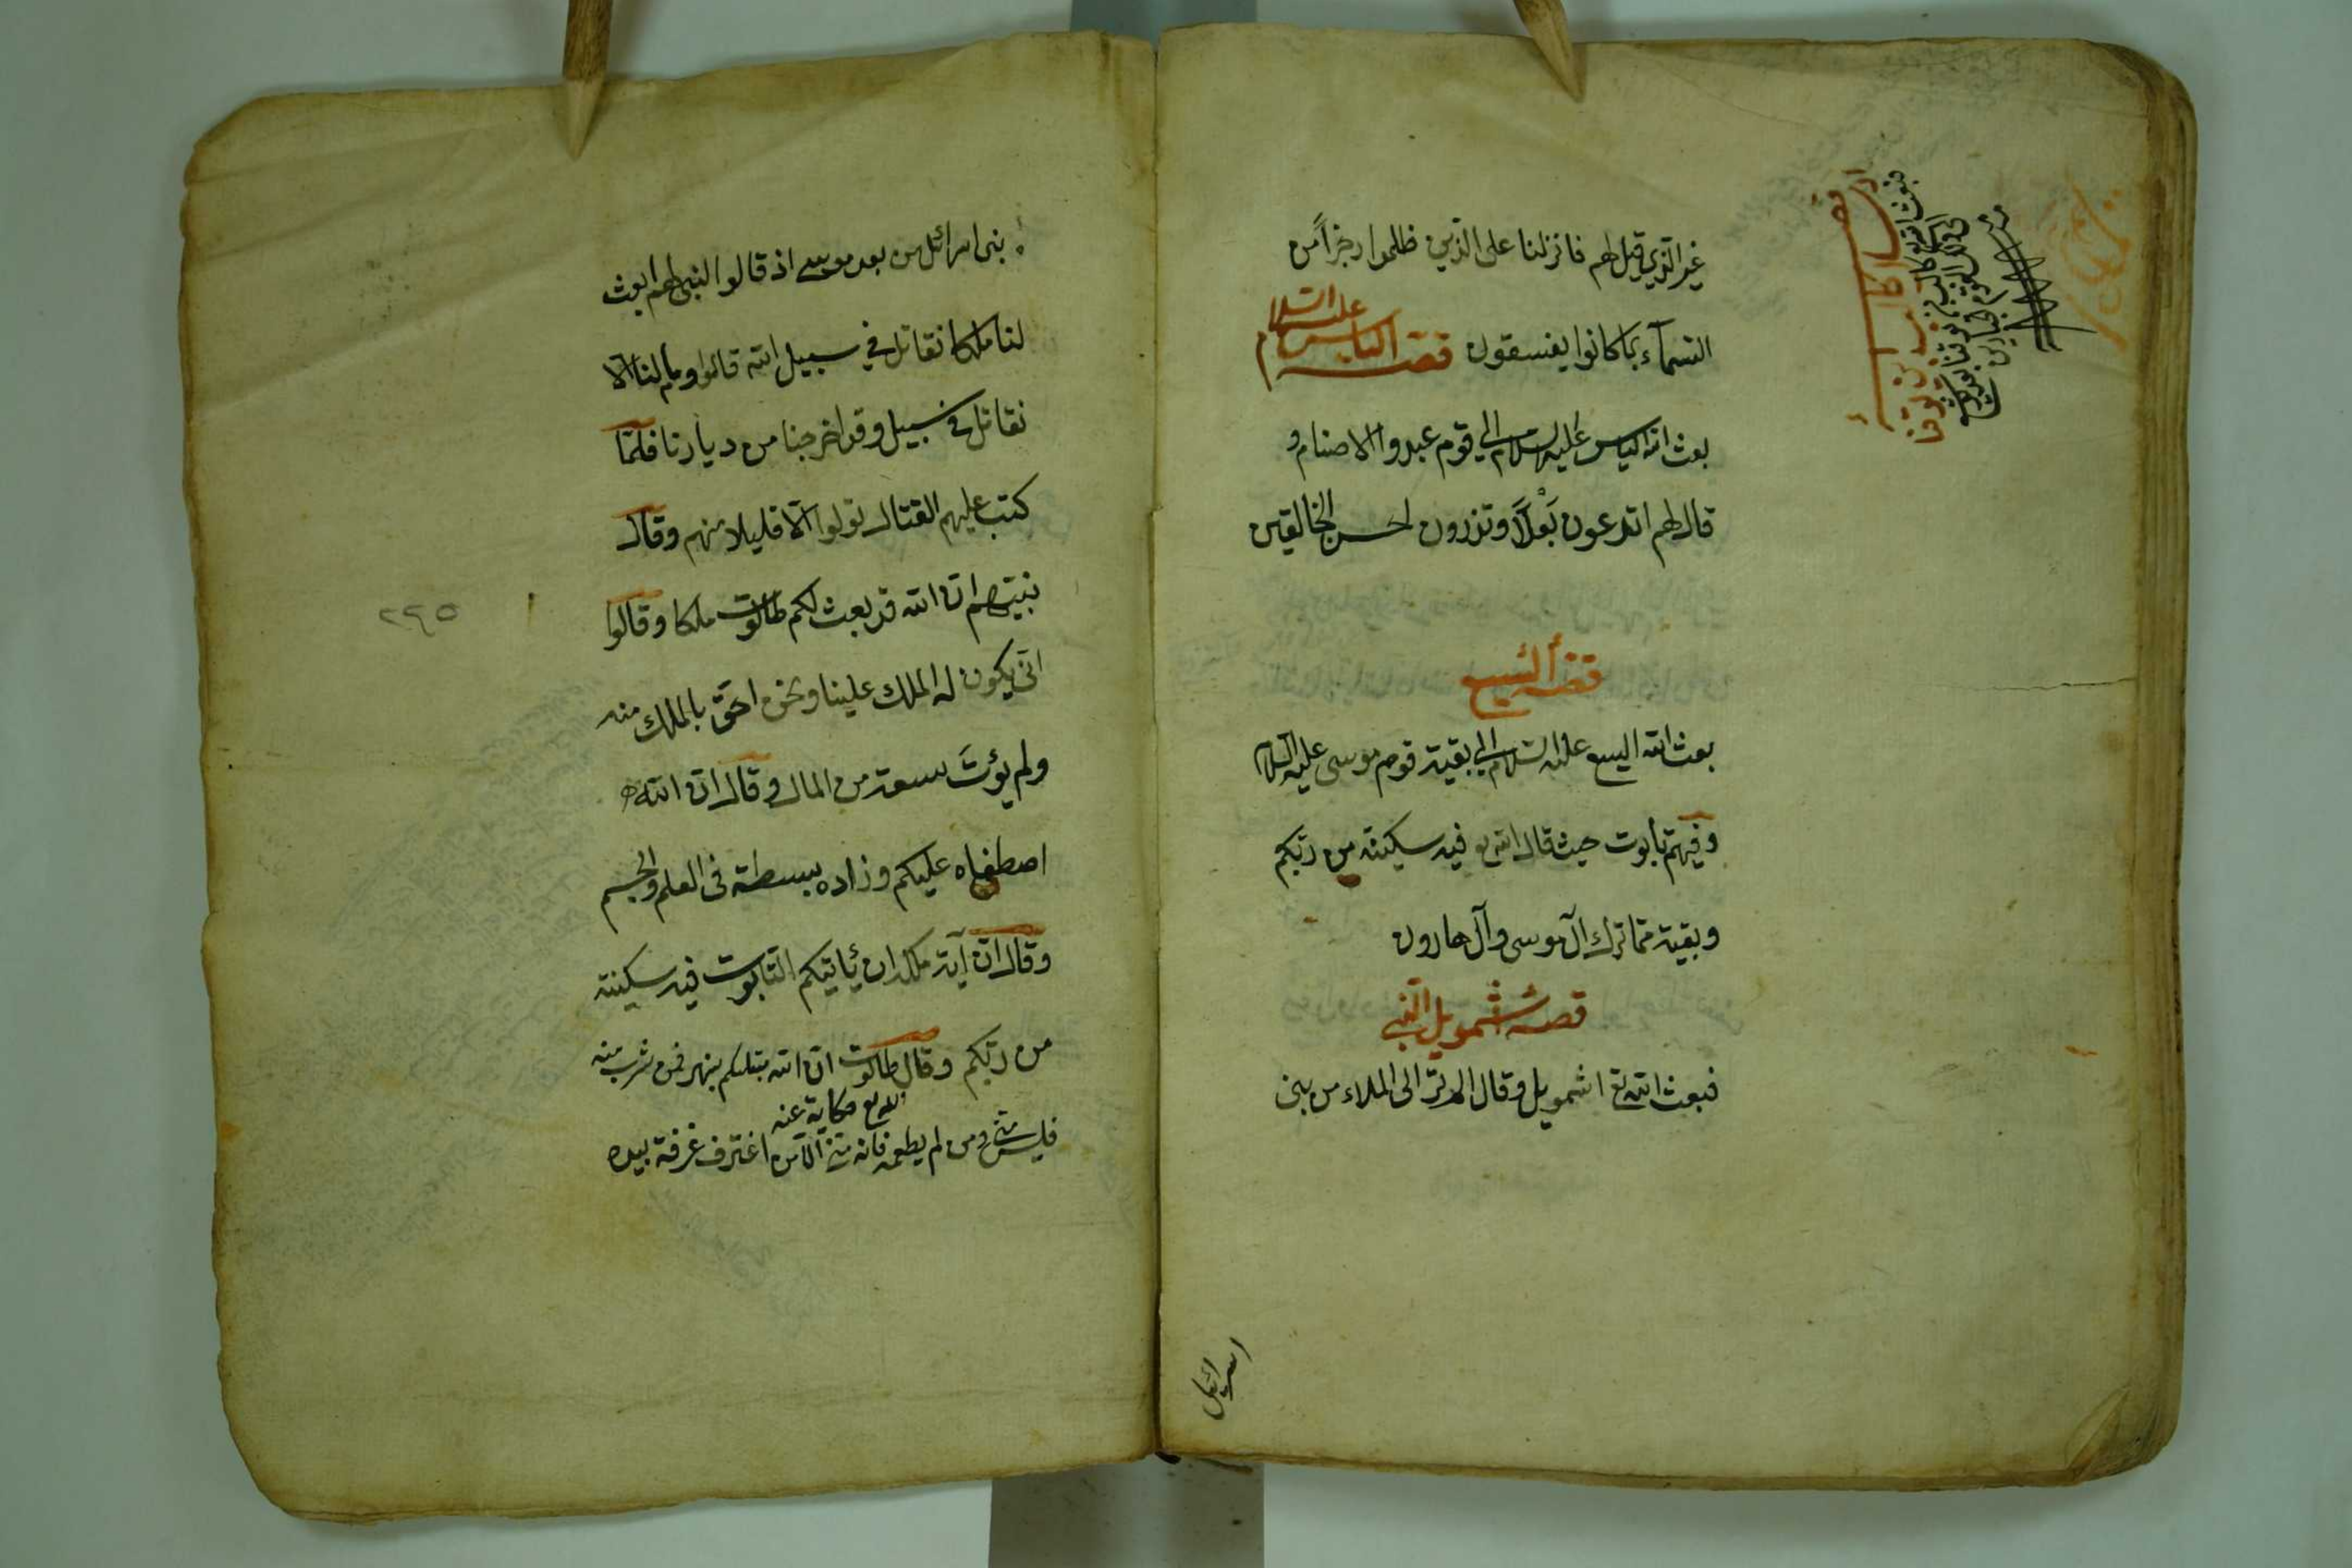 غير الذي قيل لهم فانزلنا على الذين ظلموا رجزاً من
السمآء بما كانوا يفسقون قصه الياس عليه السلام
بعث الله الياس عليه السلام الى قوم عبدوا الاصنام و
قال لهم اتدعون بَعْلاً وتذرون احسن الخالقين
قصه أليسع
بعث الله اليسع عليه السلام الى بقية قوم موسى عليه السلام
وفيهم تابوت حيث قال الله تع فيه سكينة من ربكم
وبقية مما ترك آل موسى وآل هارون
قصه شمويل النبي
فبعث الله تع اشمويل وقال الم تر الى الملاء من بنى
اسرائيل
بنى اسرائل من بعد موسى اذ قالوا لنبى لهم ابعث
لنا ملكا نقاتل في سبيل الله قالوا وما لنا الا
نقاتل في سبيل وقد اخرجنا من ديارنا فلمّا
كتب عليهم القتال تولوا الّا قليلا منهم وقال
نبيّهم انّ الله قد بعث لكم طالوت ملكا وقالوا
انّى يكون له الملك علينا ونحن احقّ بالملك منه
ولم يؤتَ سعة من المال وقال انّ الله
اصطفاه عليكم وزاده بسطة فى العلم والجسم
وقال انّ آية ملكه ان يأتيكم التابوت فيه سكينة
من ربّكم وقال طالوت انّ الله مبتليكم بنهر فمن شرب منه
حكاية عنه
فليس منّى ومن لم يطعمه فانه منّى الّا من اغترف غرفة بيده
٢٢٥